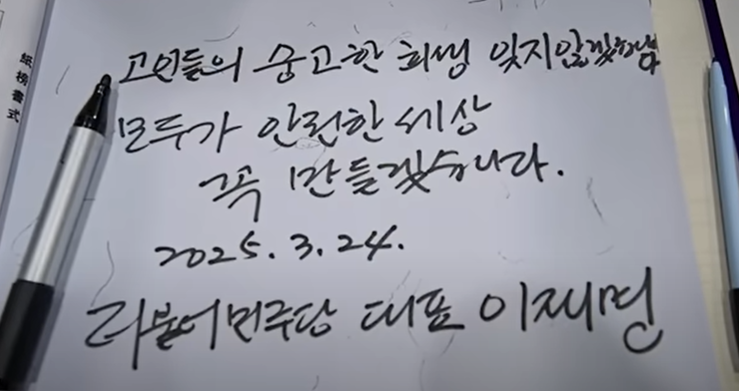 紙榜書式
고인들의 숭고한 희생 잊지않겠습니다
모두가 안전한 세상
꼭 만들겠습니다.
2025. 3. 24.
더불어민주당 대표 이재명